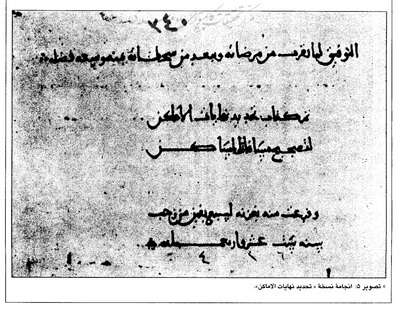 التوفيق لما يقرب من مرضاته ويبعد من سخطاته بمنه وسعة فضله
تم كتاب تحديد نهايات الاماكن
لتصحيح مسافات المساكن
وفرغت منه بغزنه لسبع بقين من رجب
سنة ست عشر واربعمائه
* تصویر ۵: انجامهٔ نسخهٔ « تحدید نهایات الاماکن».